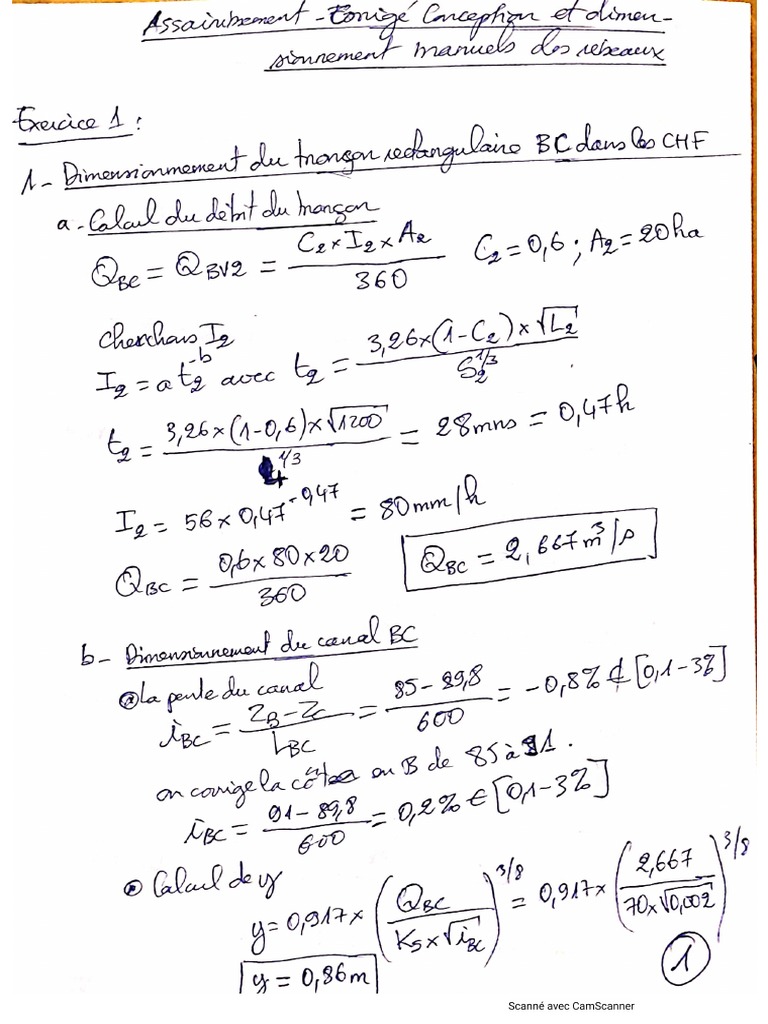 Assainissement - Corrigé Conception et dimen-
sionnement manuels des réseaux
Exercice 1 :
1 - Dimensionnement du tronçon rectangulaire BC dans les CHF
a - Calcul du débit du tronçon
Q_BC = Q_BV2 = (C₂ × I₂ × A₂) / 360   C₂ = 0,6 ; A₂ = 20 ha
cherchons I₂
I₂ = a t₂^-b avec t₂ = (3,26 × (1 - C₂) × √L₂) / S₂^1/3
t₂ = (3,26 × (1 - 0,6) × √1200) / 4^1/3 = 28 mns = 0,47 h
I₂ = 56 × 0,47^-0,47 = 80 mm/h
Q_BC = (0,6 × 80 × 20) / 360   Q_BC = 2,667 m³/s
b - Dimensionnement du canal BC
La pente du canal
i_BC = (Z_B - Z_C) / L_BC = (85 - 89,8) / 600 = -0,8% ∉ [0,1 - 3%]
on corrige la côte en B de 85 à 91.
i_BC = (91 - 89,8) / 600 = 0,2% ∈ [0,1 - 3%]
Calcul de y
y = 0,917 × (Q_BC / (K_S × √i_BC))^3/8 = 0,917 × (2,667 / (70 × √0,002))^3/8
y = 0,86 m
1
Scanné avec CamScanner